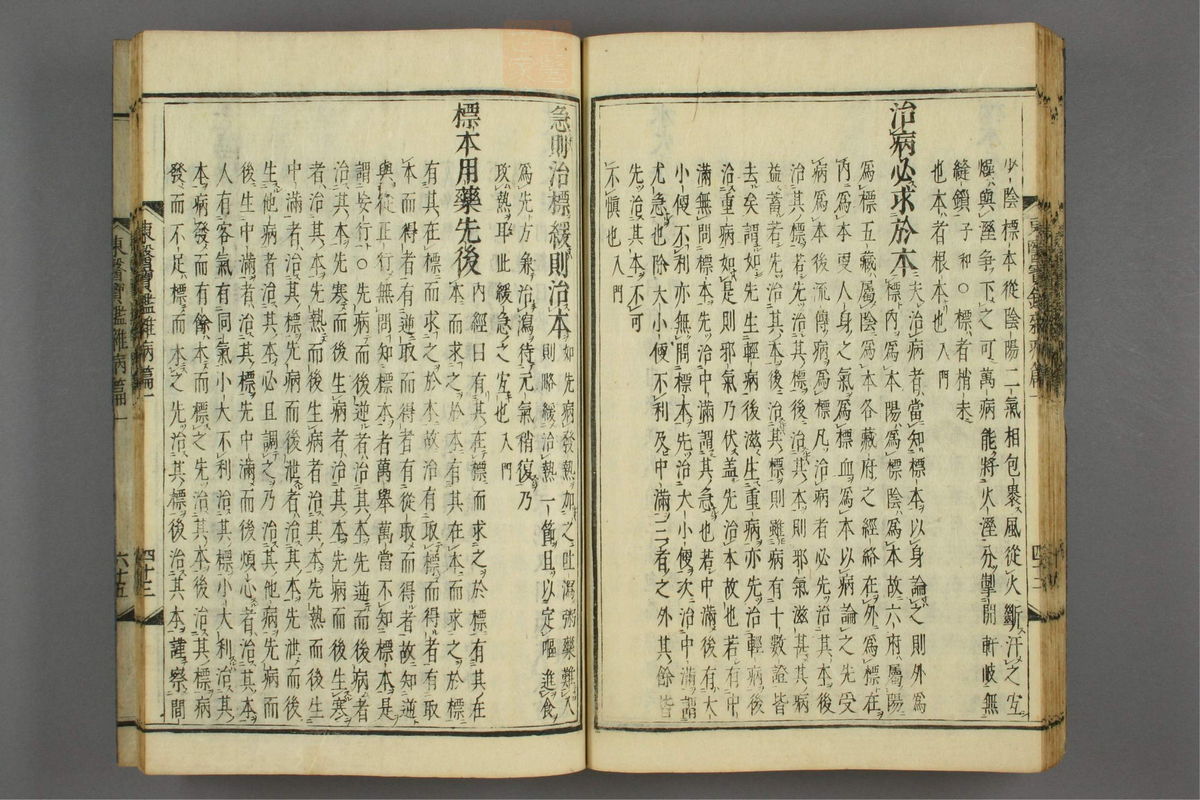 少陰標本從陰陽二氣相包裹風從火斷汗之宜
燥與濕爭下之可萬病能將火濕分掣開軒岐無
縫鎖子和○標者梢末
也本者根本也入門
治病必求於本夫治病者當知標本以身論之則外爲
標內爲本陽爲標陰爲本故六府屬陽
爲標五藏屬陰爲本各藏府之經絡在外爲標在
內爲本更人身之氣爲標血爲本以病論之先受
病爲本後流傳病爲標凡治病者必先治其本後
治其標若先治其標後治其本則邪氣滋甚其病
益蓄若先治其本後治其標則雖病有十數證皆
去矣謂如先生輕病後滋生重病亦先治輕病後
治重病如是則邪氣乃伏盖先治本故也若有中
滿無問標本先治中滿謂其急也若中滿後有大
小便不利亦無問標本先治大小便次治中滿謂
尤急也除大小便不利及中滿三者之外其餘皆
先治其本不可
不愼也入門
東醫寶鑑雜病篇一
急則治標緩則治本如先病發熱加之吐瀉粥藥難入
則略緩治熱一節且以定嘔進食
爲先方兼治瀉待元氣稍復乃
攻熱耳此緩急之宜也入門
標本用藥先後內經曰有其在標而求之於標有其在
本而求之於本有其在本而求之於標
有其在標而求之於本故治有取標而得者有取
本而得者有逆取而得者有從取而得者故知逆
與從正行無問知標本者萬擧萬當不知標本是
謂妄行○先病而後逆者治其本先逆而後病者
治其本先寒而後生病者治其本先病而後生寒
者治其本先熱而後生病者治其本先熱而後生
中滿者治其標先病而後泄者治其本先泄而後
生他病者治其本必且調之乃治其他病先病而
後生中滿者治其標先中滿而後煩心者治其本
人有客氣有同氣小大不利治其標小大利治其
本病發而有餘本而標之先治其本後治其標病
發而不足標而本之先治其標後治其本謹察間
東醫寶鑑雜病篇一
四十三
六十五